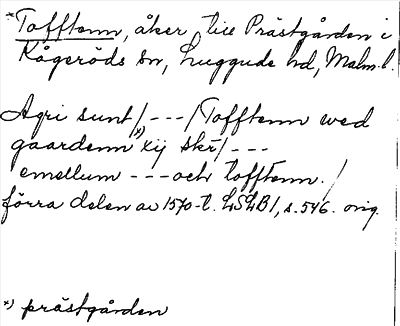 *Tofftenn, åker, till Prästgården i
Kågeröds sn, Luggude hd, Malm. l.
Agri sunt/---/Tofftenn wed
gaardenn *) xij skr/---
emellum ---och tofftenn./
förra delen av 1570-t. LSLB1, s. 546. orig.
*) prästgården